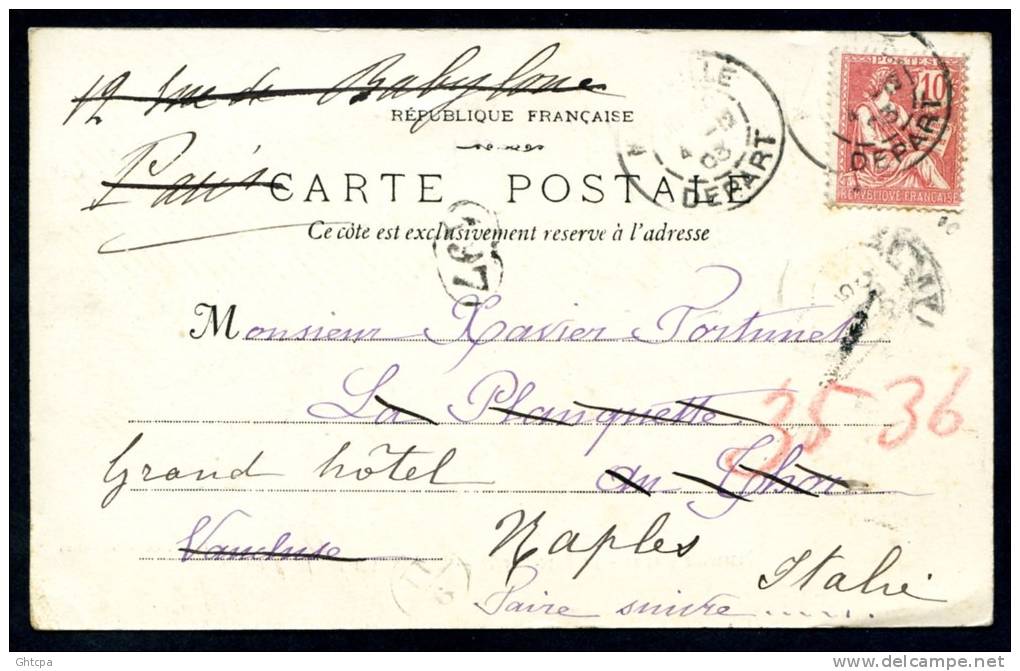 12 rue de Babylone
RÉPUBLIQUE FRANÇAISE
Paris
CARTE POSTALE
Ce côte est exclusivement reserve à l'adresse
DEPART
03
POSTES
10
DEPART
REPVBLIQVE FRANÇAISE
Monsieur Xavier Fortunet
La Planquette
35 36
Grand hôtel
au Thor
Vaucluse
Naples
Italie
Faire suivre
Ghtcpa
delcampe.net